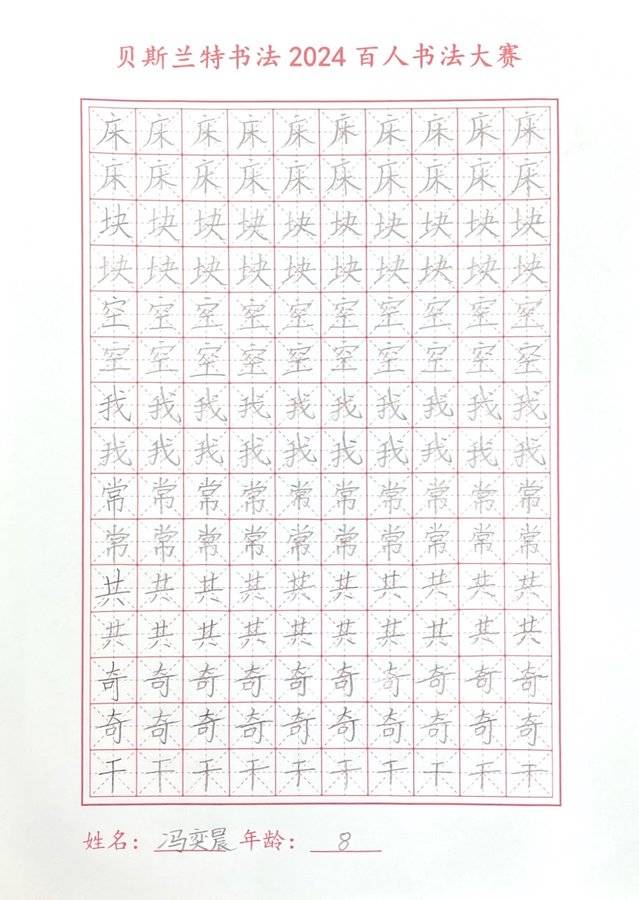 贝斯兰特书法2024百人书法大赛
床床床床床床床床床床
床床床床床床床床床床
块块块块块块块块块块
块块块块块块块块块块
空空空空空空空空空空
空空空空空空空空空空
我我我我我我我我我我
我我我我我我我我我我
常常常常常常常常常常
常常常常常常常常常常
共共共共共共共共共共
共共共共共共共共共共
奇奇奇奇奇奇奇奇奇奇
奇奇奇奇奇奇奇奇奇奇
干干干干干干干干干干
姓名：冯奕晨 年龄：8